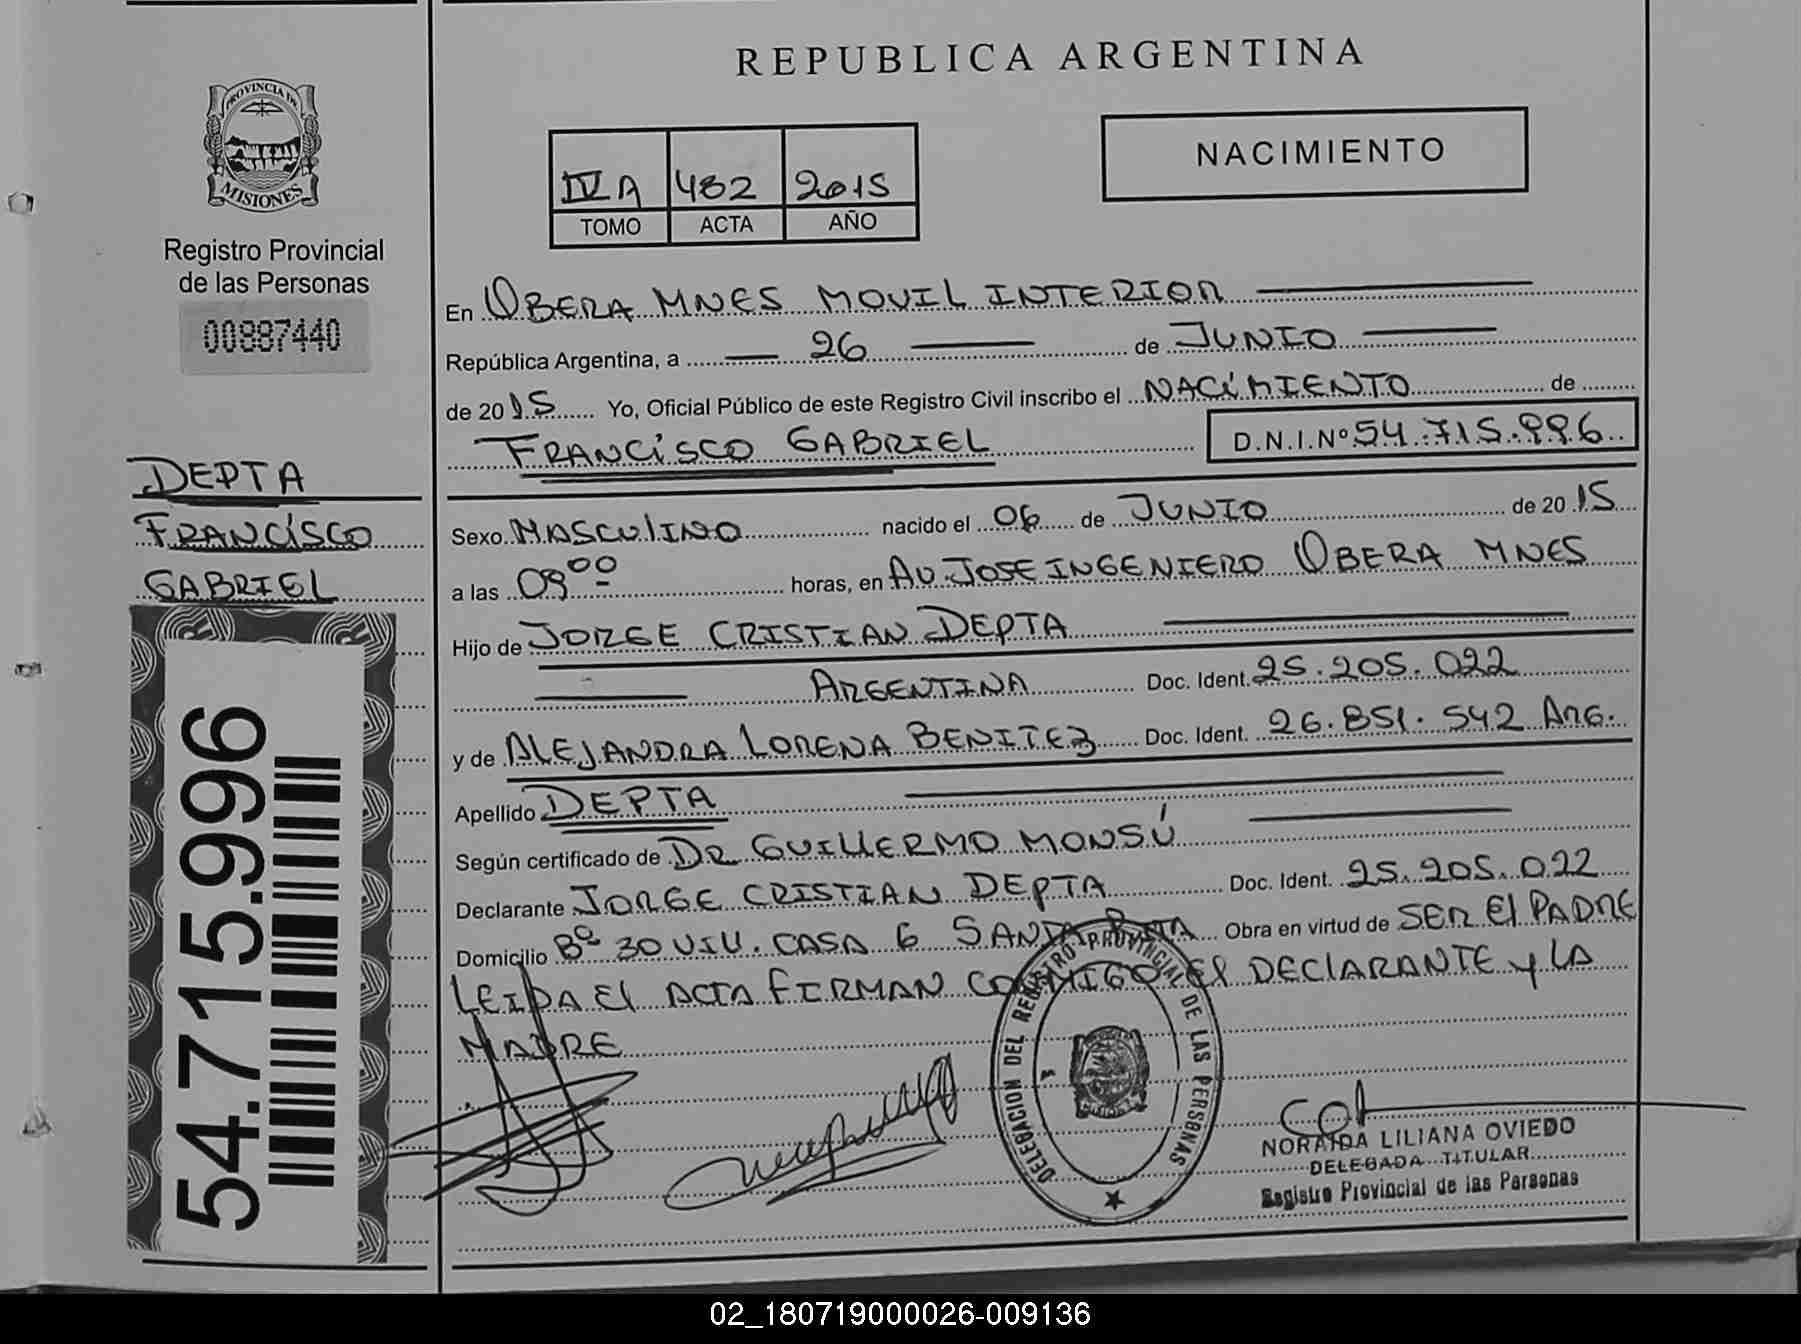 REPUBLICA ARGENTINA
PROVINCIA DE
MISIONES
Registro Provincial
de las Personas
00887440
DEPTA
FRANCISCO
GABRIEL
54.715.996
IV A 482 2015
TOMO ACTA AÑO
NACIMIENTO
En OBERA MNES MOVIL INTERIOR
República Argentina, a 26 de JUNIO
de 2015 Yo, Oficial Público de este Registro Civil inscribo el NACIMIENTO de
FRANCISCO GABRIEL D.N.I.Nº 54.715.996
Sexo MASCULINO nacido el 06 de JUNIO de 2015
a las 09 00 horas, en AV. JOSE INGENIERO OBERA MNES
Hijo de JORGE CRISTIAN DEPTA
ARGENTINA Doc. Ident. 25.205.022
y de ALEJANDRA LORENA BENITEZ Doc. Ident. 26.851.542 ARG.
Apellido DEPTA
Según certificado de DR GUILLERMO MONSÚ
Declarante JORGE CRISTIAN DEPTA Doc. Ident. 25.205.022
Domicilio Bº 30 VIV. CASA 6 SANTA RITA Obra en virtud de SER El PADRE
LEIDA El ACTA FIRMAN CONMIGO El DECLARANTE y LA
MADRE
DELEGACION DEL REGISTRO PROVINCIAL DE LAS PERSONAS
NORAIDA LILIANA OVIEDO
DELEGADA TITULAR
Registro Provincial de las Personas
02_180719000026-009136